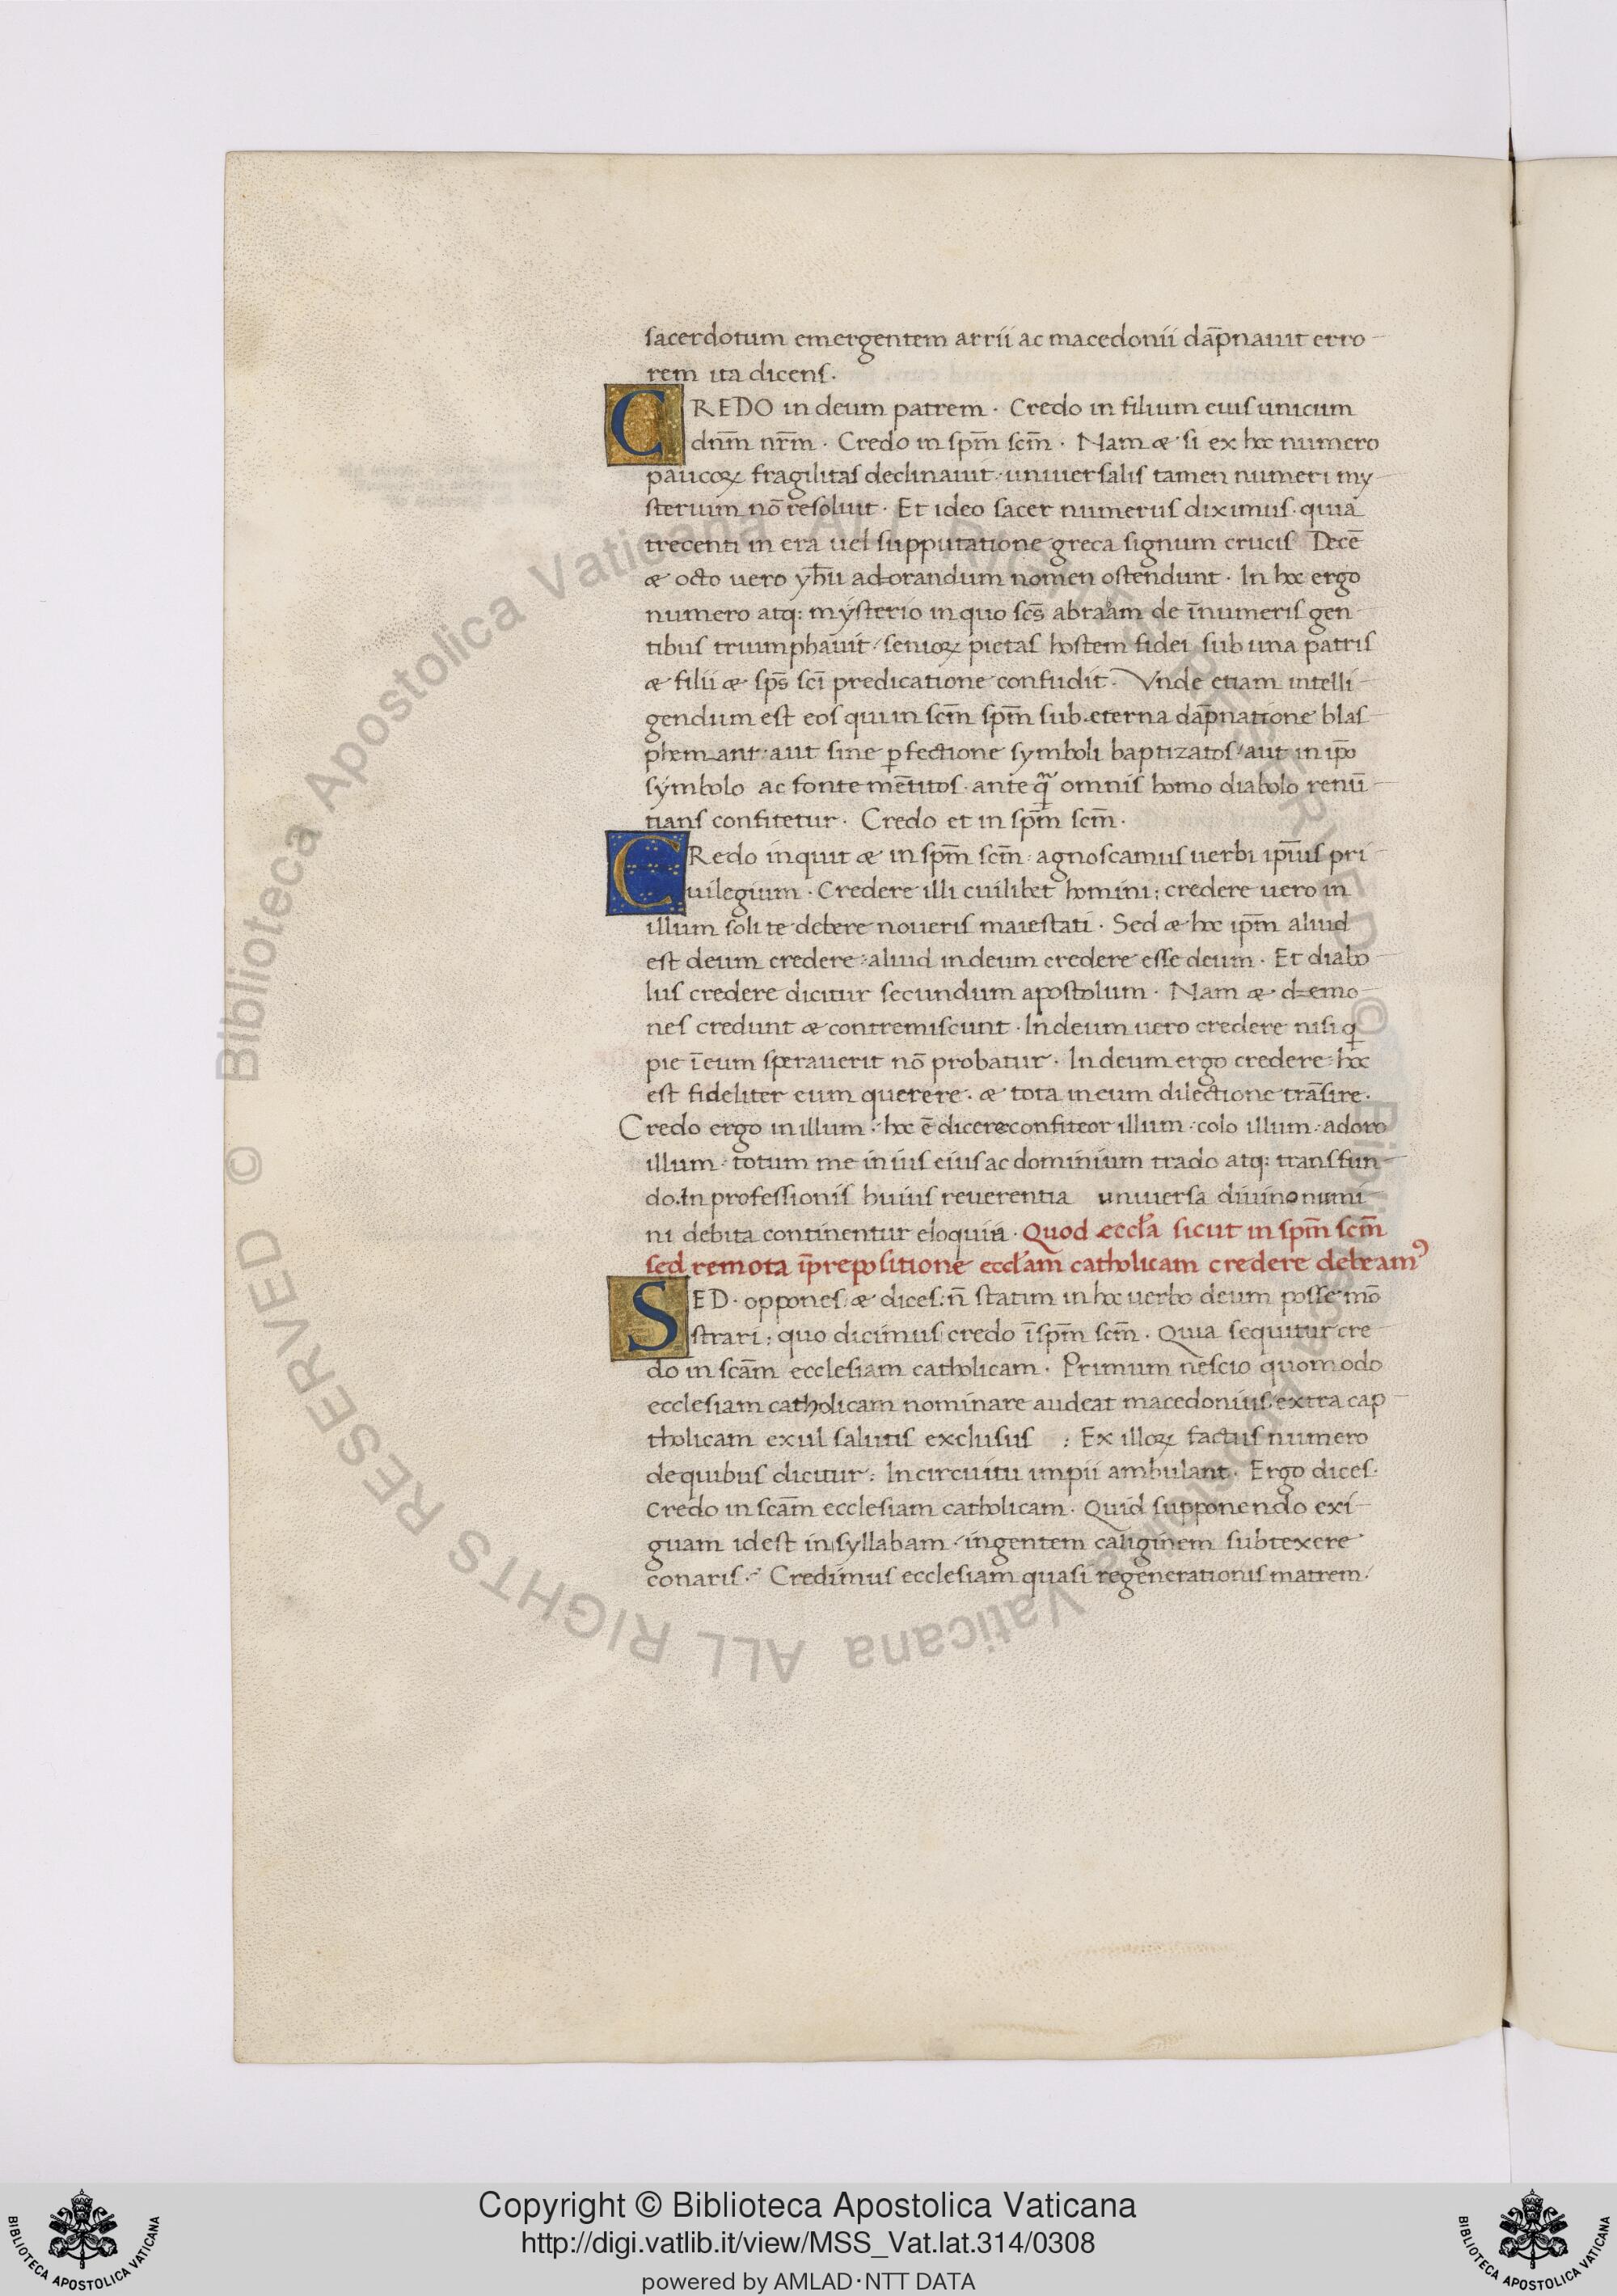 sacerdotum emergentem arrii ac macedonii dap̄nauit erro
rem ita dicens.
CREDO in deum patrem · Credo in filium eius unicum
dnm̄ nrm̄ · Credo in spm̄ scm̄ · Nam æ si ex hoc numero
paucoꝝ fragilitas declinauit · uniuersalis tamen numeri my
sterium nō resoluit · Et ideo sacer numerus diximus · quia
trecenti in era uel supputatione greca signum crucis Decē
æ octo uero yhū adorandum nomen ostendunt · In hoc ergo
numero atq: mysterio in quo scs̄ abraam de īnumeris gen
tibus triumphauit / senioꝝ pietas hostem fidei sub una patris
æ filii æ sps̄ scī predicatione confudit. Vnde etiam intelli
gendum est eos qui in scm̄ spm̄ sub eterna dap̄natione blas
phemant · aut sine ꝑfectione symboli baptizatos / aut in ipō
symbolo ac fonte mētitos · ante q̄ omnis homo diabolo renū
tians confitetur · Credo et in spm̄ scm̄.
CRedo inquit æ in spm̄ scm̄ · agnoscamus uerbi ipīus pri
uilegium · Credere illi cuilibet homini; credere uero in
illum soli te debere noueris maiestati · Sed æ hoc ipm̄ aliud
est deum credere · aliud in deum credere esse deum · Et diabo
lus credere dicitur secundum apostolum · Nam æ demo
nes credunt æ contremiscunt · In deum uero credere nisi q
pie ī eum sperauerit nō probatur · In deum ergo credere · hoc
est fideliter eum querere · æ tota in eum dilectione trāsire ·
Credo ergo in illum · hoc ē dicere confiteor illum · colo illum · adoro
illum · totum me in ius eius ac dominium trado atq: transfun
do. In professionis huius reuerentia uniuersa diuino numi
ni debita continentur eloquia · Quod eccla sicut in spm̄ scm̄
sed remota īprepositione ecclam catholicam credere debeamꝰ
SED · oppones · æ dices : n̄ statim in hoc uerbo deum posse mō
strari; quo dicimus credo ī spm̄ scm̄ · Quia sequitur cre
do in scām ecclesiam catholicam · Primum nescio quomodo
ecclesiam catholicam nominare audeat macedonius · extra cap
tholicam exul salutis exclusus : Ex illoꝝ factus numero
de quibus dicitur: In circuitu impii ambulant · Ergo dices.
Credo in scām ecclesiam catholicam · Quid supponendo exi
guam id est in syllabam · ingentem caliginem subtexere
conaris · Credimus ecclesiam quasi regenerationis matrem.
© Biblioteca Apostolica Vaticana ALL RIGHTS RESERVED © Biblioteca Apostolica Vaticana ALL RIGHTS RESERVED
Copyright © Biblioteca Apostolica Vaticana
http://digi.vatlib.it/view/MSS_Vat.lat.314/0308
powered by AMLAD·NTT DATA
BIBLIOTECA APOSTOLICA VATICANA
BIBLIOTECA APOSTOLICA VATICANA